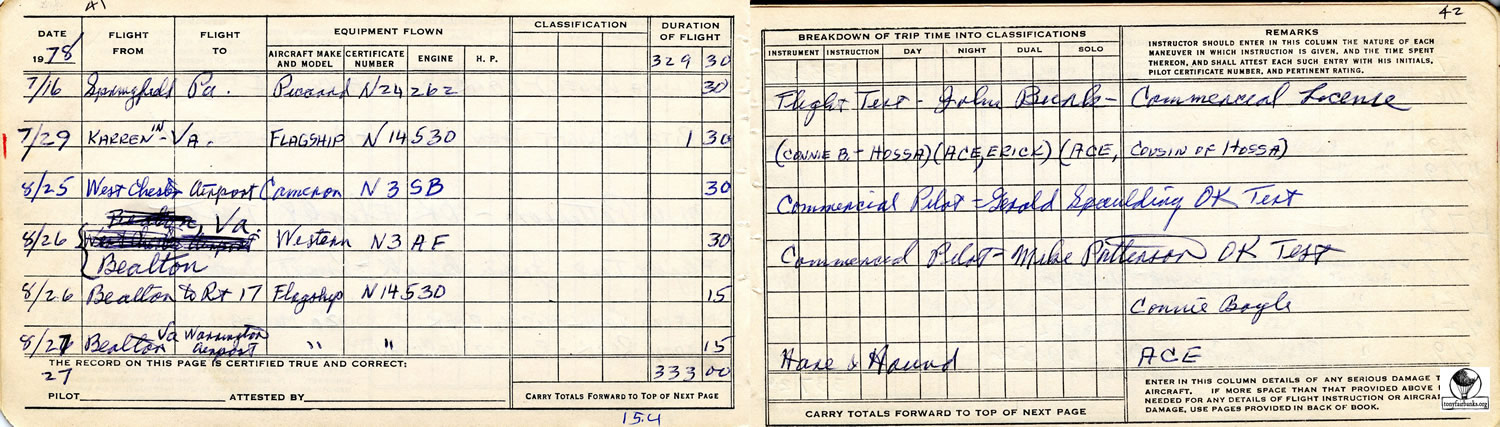 41
DATE
1978
FLIGHT FROM
FLIGHT TO
EQUIPMENT FLOWN
AIRCRAFT MAKE AND MODEL
CERTIFICATE NUMBER
ENGINE
H. P.
CLASSIFICATION
DURATION OF FLIGHT
329 30
7/16 Springfield Pa. Piccard N24262 30
7/29 KARREN IN - VA. FLAGSHIP N14530 1 30
8/25 West Chester Airport Cameron N3SB 30
Bealton, Va.
8/26 Western N3AF 30
Bealton
8/26 Bealton to Rt 17 Flagship N14530 15
8/27 Bealton Va Warrington Airport " " 15
THE RECORD ON THIS PAGE IS CERTIFIED TRUE AND CORRECT:
27
333 00
PILOT ATTESTED BY
CARRY TOTALS FORWARD TO TOP OF NEXT PAGE
15.4
42
BREAKDOWN OF TRIP TIME INTO CLASSIFICATIONS
INSTRUMENT INSTRUCTION DAY NIGHT DUAL SOLO
REMARKS
INSTRUCTOR SHOULD ENTER IN THIS COLUMN THE NATURE OF EACH
MANEUVER IN WHICH INSTRUCTION IS GIVEN, AND THE TIME SPENT
THEREON, AND SHALL ATTEST EACH SUCH ENTRY WITH HIS INITIALS,
PILOT CERTIFICATE NUMBER, AND PERTINENT RATING.
Flight Test - John Burk - Commercial License
(CONNIE B. - HOSSA) (ACE, ERICK) (ACE, COUSIN OF HOSSA)
Commercial Pilot - Gerold Spaulding OK Test
Commercial Pilot - Mike Patterson OK Test
Connie Boyle
Hare & Hound ACE
ENTER IN THIS COLUMN DETAILS OF ANY SERIOUS DAMAGE T
AIRCRAFT. IF MORE SPACE THAN THAT PROVIDED ABOVE I
NEEDED FOR ANY DETAILS OF FLIGHT INSTRUCTION OR AIRCRA
DAMAGE, USE PAGES PROVIDED IN BACK OF BOOK.
CARRY TOTALS FORWARD TO TOP OF NEXT PAGE
tonyfairbanks.org